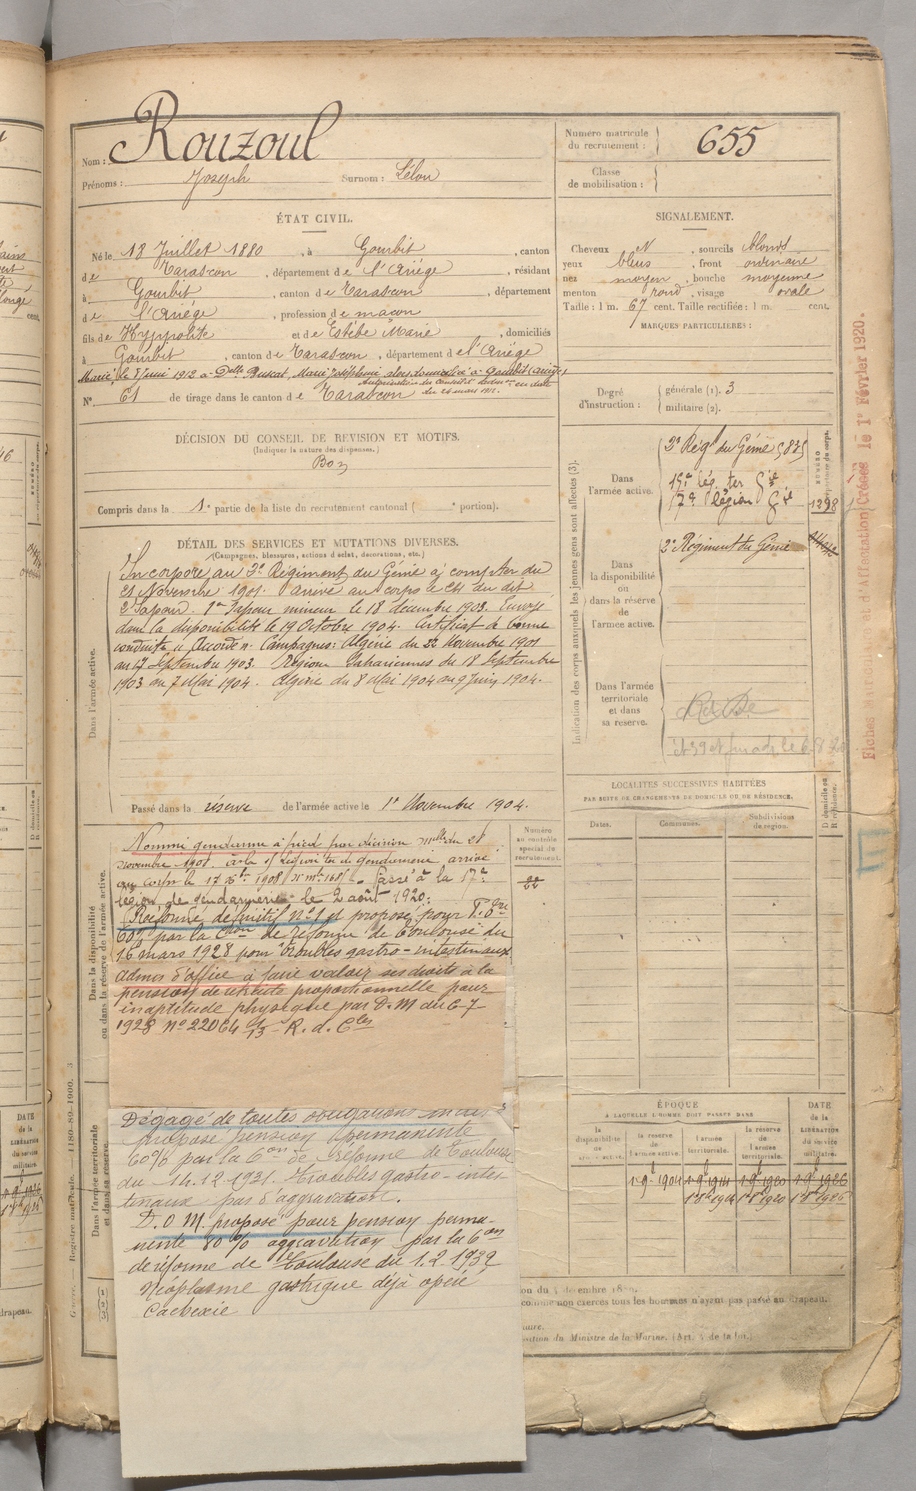 Nom : Rouzoul
Prénoms : Joseph Surnom : Lélou
Numéro matricule du recrutement : 655
Classe de mobilisation :
ÉTAT CIVIL.
Né le 18 Juillet 1880, à Gourbit, canton
de Tarascon, département de l'Ariége, résidant
à Gourbit, canton de Tarascon, département
de l'Ariége, profession de maçon
fils de Hyppolite et de Estèbe Marie, domiciliés
à Gourbit, canton de Tarascon, département de l'Ariége
Marié, le 8 Juin 1912 à Delle Buscat, Marie Joséphine alors domiciliée à Gourbit (Ariège)
Autorisation du Conseil d'adm on en date
du 26 mars 1912.
N° 61 de tirage dans le canton de Tarascon
SIGNALEMENT.
Cheveux N, sourcils blonds
yeux bleus, front ordinaire
nez moyen, bouche moyenne
menton rond, visage ovale
Taille : 1 m. 67 cent. Taille rectifiée : 1 m. cent.
MARQUES PARTICULIÈRES :
Degré d'instruction : générale (1). 3
militaire (2).
DÉCISION DU CONSEIL DE REVISION ET MOTIFS.
(Indiquer la nature des dispenses.)
Bon
Compris dans la 1e partie de la liste du recrutement cantonal ( e portion).
DÉTAIL DES SERVICES ET MUTATIONS DIVERSES.
(Campagnes, blessures, actions d'éclat, décorations, etc.)
Dans l'armée active.
Incorporé au 2e Régiment du Génie à compter du
21 Novembre 1901. arrivé au corps le et du dit
2e Sapeur. 1er Sapeur mineur le 18 décembre 1903. Envoyé
dans la disponibilité le 19 Octobre 1904. Certificat de bonne
conduite "Accordé". Campagnes: Algérie du 22 Novembre 1901
au 17 Septembre 1903. Régions Sahariennes du 18 Septembre
1903 au 7 Mai 1904. Algérie du 8 Mai 1904 au 9 Juin 1904.
Passé dans la réserve de l'armée active le 1er Novembre 1904.
Indication des corps auxquels les jeunes gens sont affectés (3).
Dans l'armée active.
2e Régt du Génie
15e lég. ter Gie
17e légion Gie
1298
Dans la disponibilité ou dans la réserve de l'armée active.
2e Régiment du Génie
Dans l'armée territoriale et dans sa réserve.
Fiches d'Affectation Créées le 1er Février 1920.
LOCALITÉS SUCCESSIVES HABITÉES
PAR SUITE DE CHANGEMENTS DE DOMICILE OU DE RÉSIDENCE.
Dates. Communes. Subdivisions de région. D domicile ou R résidence.
Numéro au contrôle spécial du recrutement.
Dans la disponibilité ou dans la réserve de l'armée active.
Nommé gendarme à pied par décision mlle du 28
novembre 1908. à la légion ter de gendarmerie, arrivé
au corps le 17 Xbre 1908 Passé à la 17e
légion de gendarmerie le 2 août 1920.
Réformé définitif N°1 et proposé pour P. Pre
60% par la Con de réforme de Toulouse du
16 mars 1928 pour troubles gastro-intestinaux
Admis d'office à faire valoir ses droits à la
pension de retraite proportionnelle pour
inaptitude physique par D. M du 6-7
1928 N° 22064 R. d. C
Dégagé de toutes obligations milit es
proposé pension permanente
60% par la Con de réforme de Toulouse
du 14.12.1931. Troubles gastro-intes
tinaux pas d'aggravation.
D.O M. proposé pour pension perma-
nente 80% aggravation par la Con
de réforme de Toulouse du 1.2.1939
Néoplasme gastrique déjà opéré
Cachexie
Dans l'armée territoriale et dans sa réserve.
ÉPOQUE
À LAQUELLE L'HOMME DOIT PASSER DANS
la disponibilité de l'armée active.
la réserve de l'armée active. 1-9-1904
l'armée territoriale. 1-9-1914 1er 8bre 1914
la réserve de l'armée territoriale. 1-9-1920 1er 8bre 1920
DATE de la LIBÉRATION du service militaire. 1-9-1926 1er 8bre 1926
comme non exercés tous les hommes n'ayant pas passé au drapeau.
du Ministre de la Marine. (Art. de la loi.)